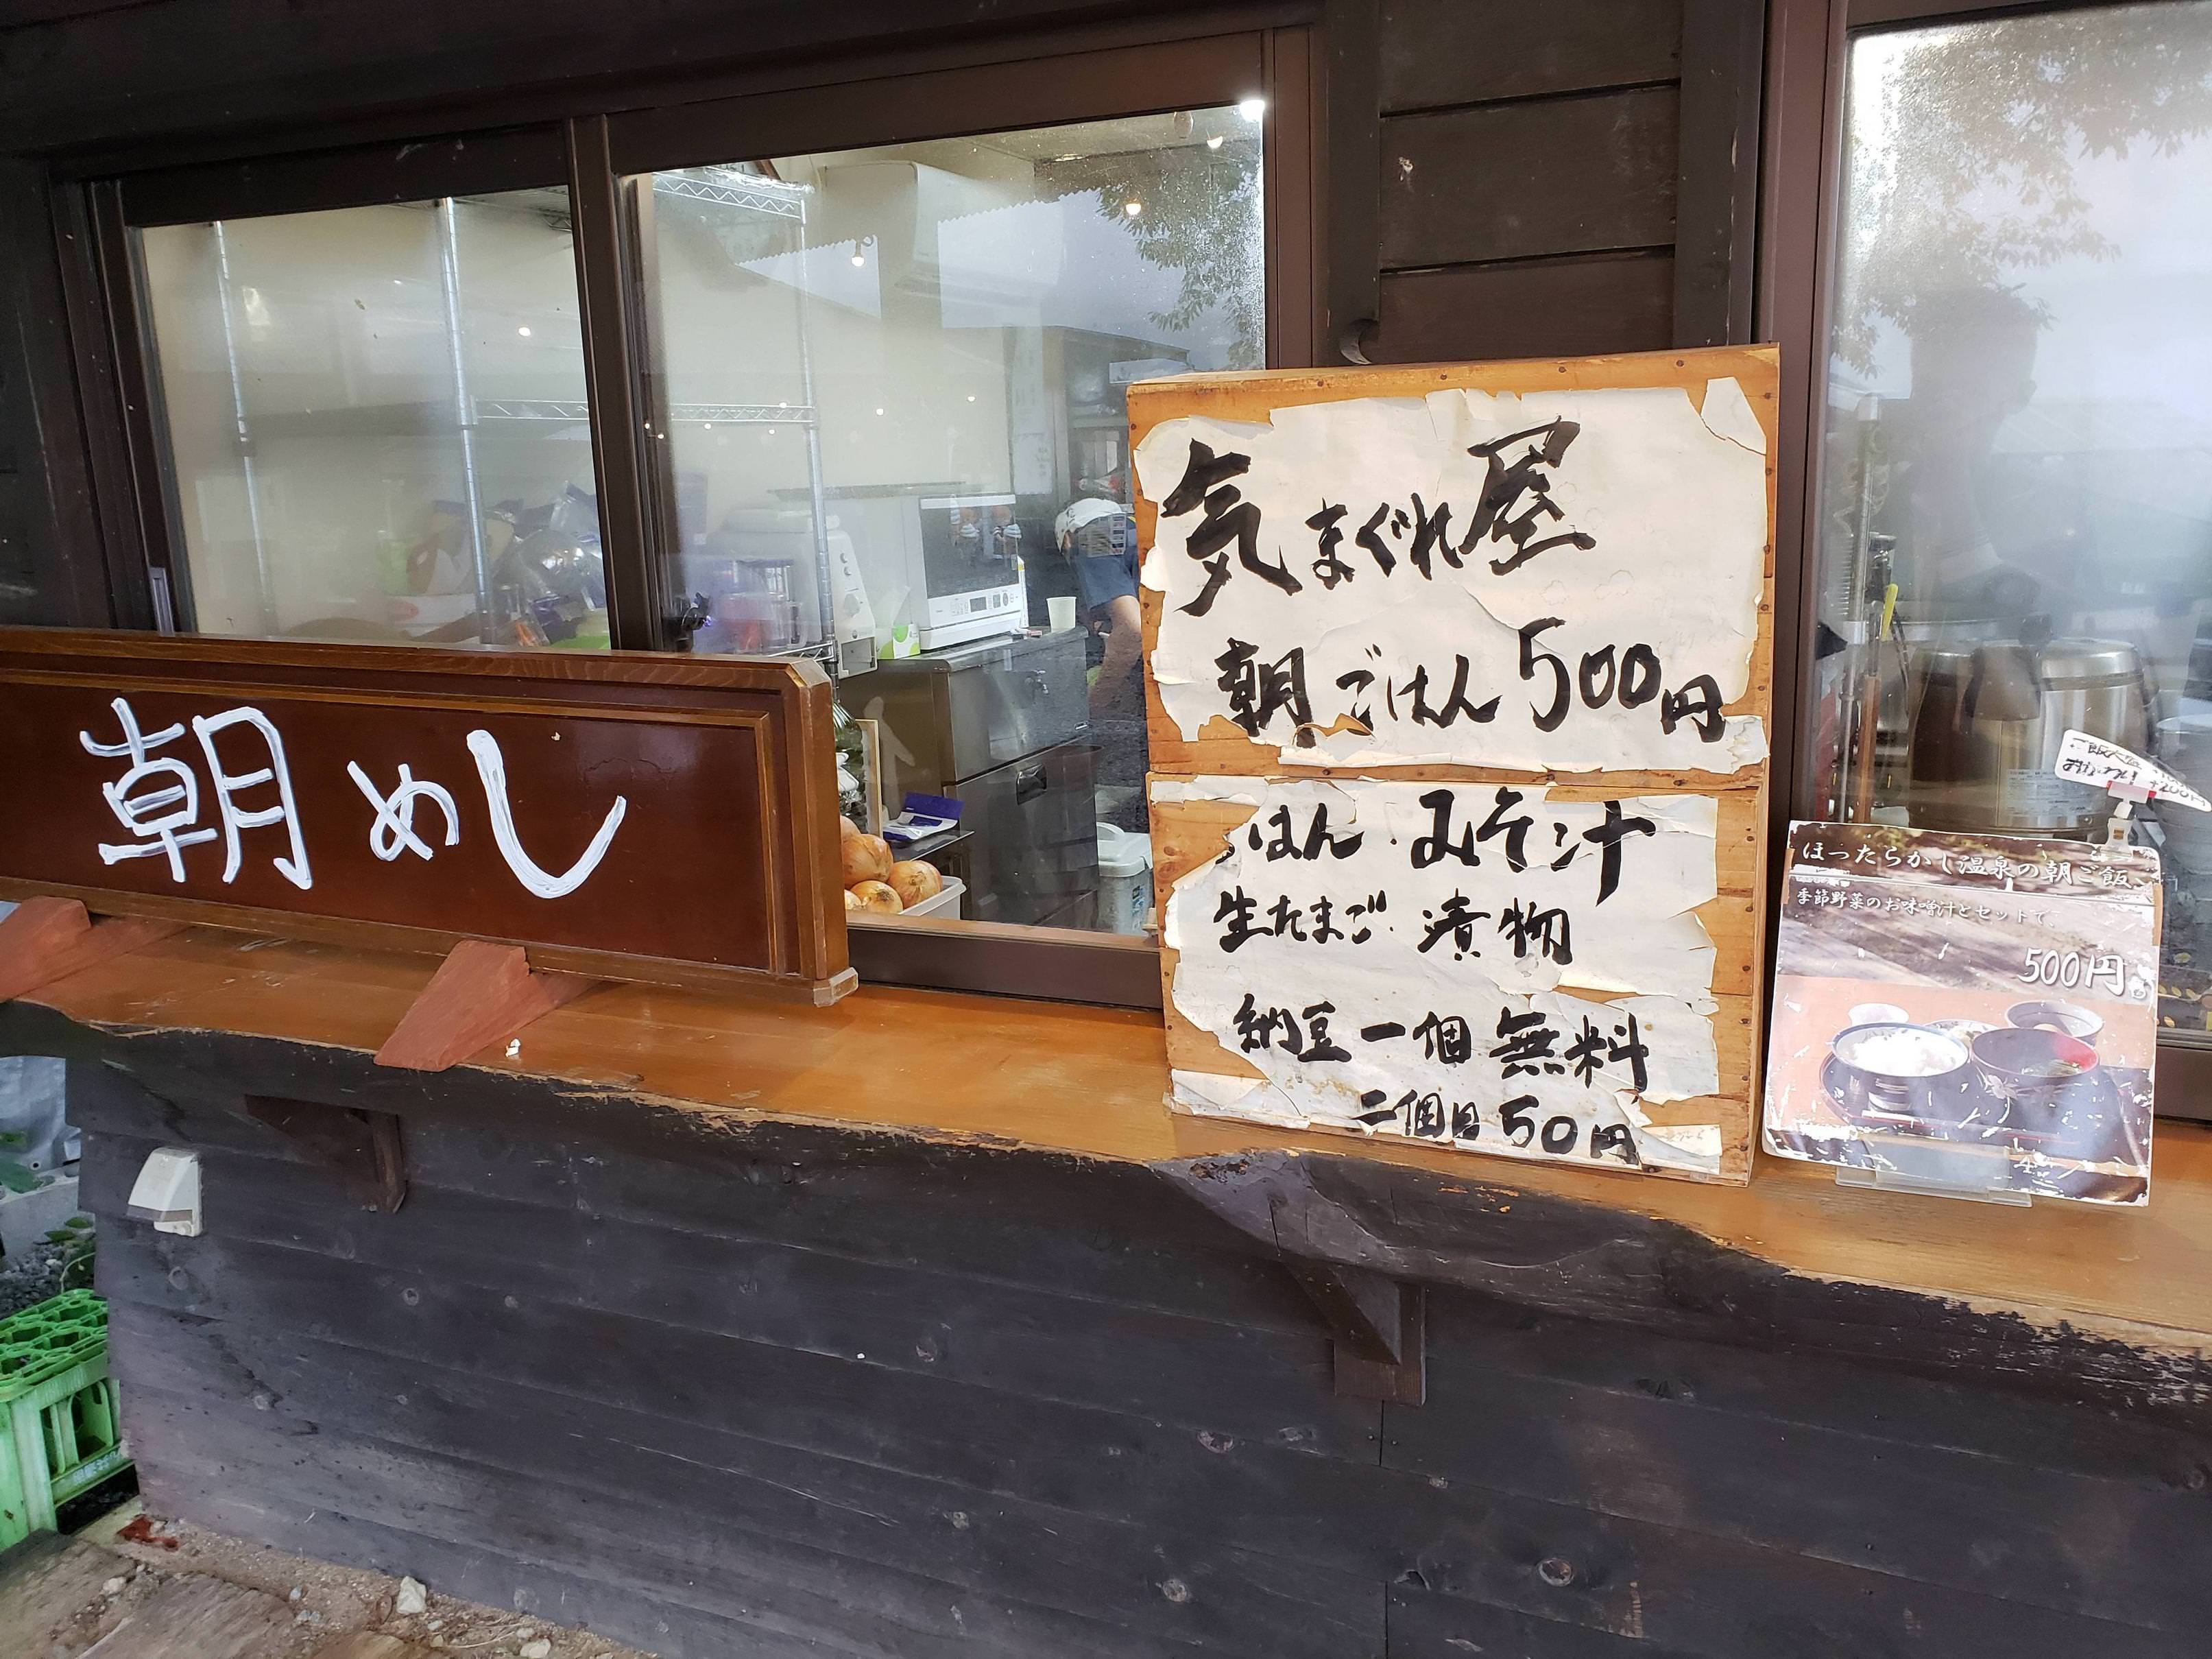 朝めし
気まぐれ屋
朝ごはん500円
はん みそ汁
生たまご 漬物
納豆一個無料
二個目50円
ほったらかし温泉の朝ご飯
季節野菜のお味噌汁とセットで、
500円